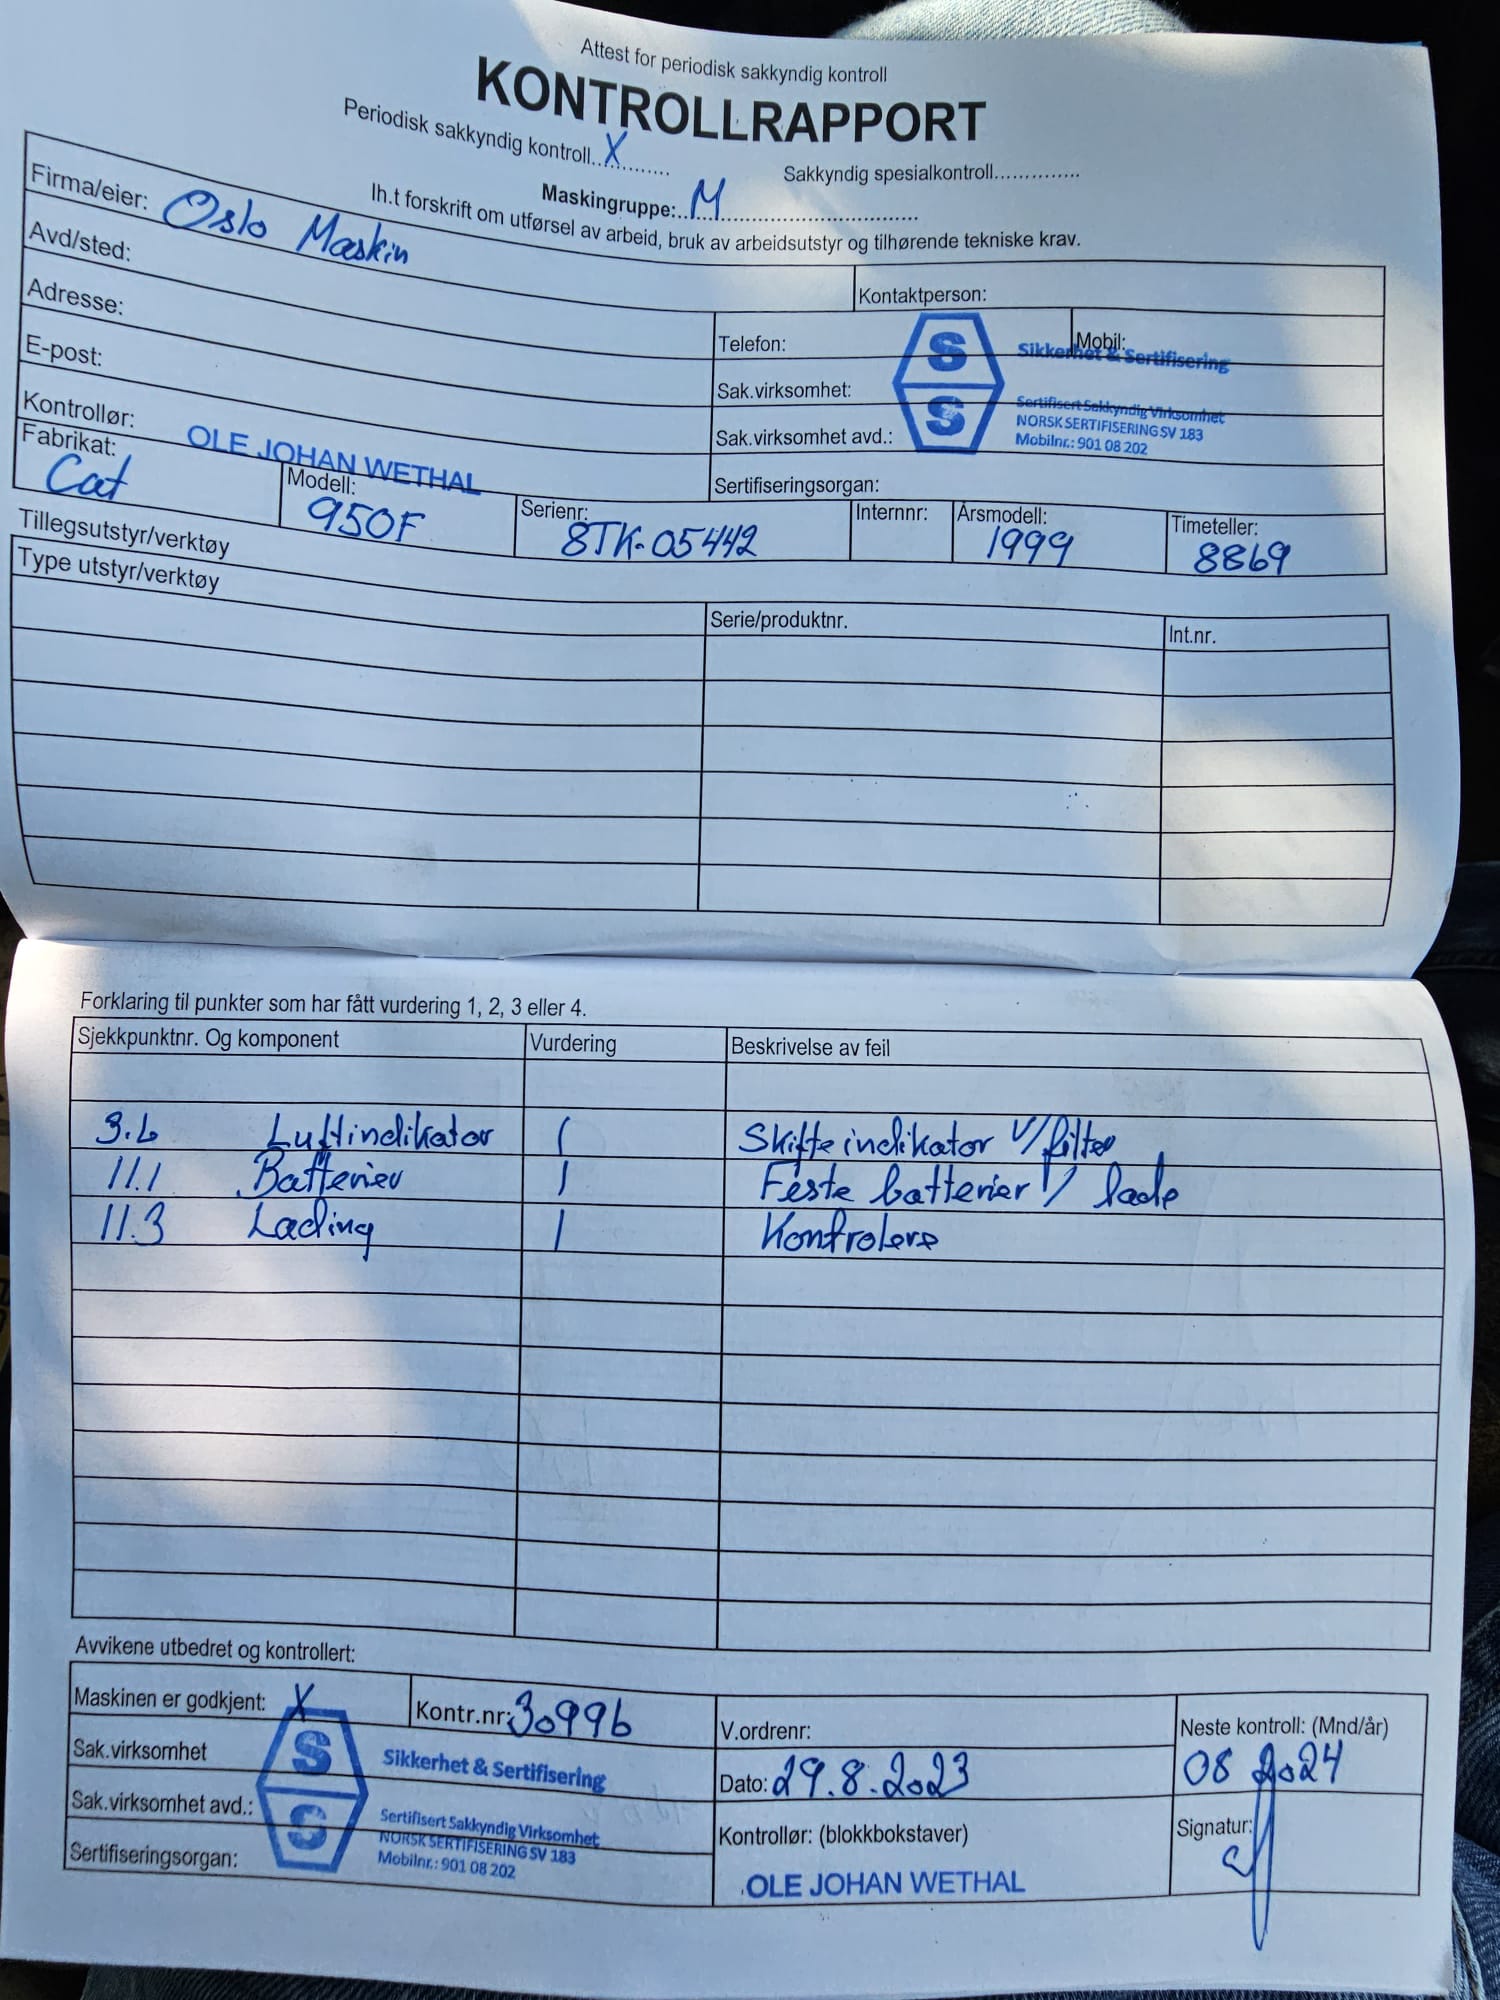 Attest for periodisk sakkyndig kontroll
KONTROLLRAPPORT
Periodisk sakkyndig kontroll..X..........
Sakkyndig spesialkontroll..............
Maskingruppe:..M..................................
Ih.t forskrift om utførsel av arbeid, bruk av arbeidsutstyr og tilhørende tekniske krav.
Firma/eier: Oslo Maskin
Kontaktperson:
Avd/sted:
Telefon:
Mobil:
Adresse:
Sak.virksomhet:
E-post:
Sak.virksomhet avd.:
S
S
Sikkerhet & Sertifisering
Sertifisert Sakkyndig Virksomhet
NORSK SERTIFISERING SV 183
Mobilnr.: 901 08 202
Kontrollør: OLE JOHAN WETHAL
Sertifiseringsorgan:
Fabrikat: Cat
Modell: 950F
Serienr: 8TK-05442
Internnr:
Årsmodell: 1999
Timeteller: 8869
Tillegsutstyr/verktøy
Type utstyr/verktøy
Serie/produktnr.
Int.nr.
Forklaring til punkter som har fått vurdering 1, 2, 3 eller 4.
Sjekkpunktnr. Og komponent Vurdering Beskrivelse av feil
Luftindikator 1 Skifte indikator v/filter
11.1 Batterier 1 Feste batterier / lade
11.3 Lading 1 Kontrolere
Avvikene utbedret og kontrollert:
Maskinen er godkjent: X
Kontr.nr: 30996
V.ordrenr:
Neste kontroll: (Mnd/år)
08 2024
Sak.virksomhet
Dato: 29.8.2023
Sak.virksomhet avd.:
S
S
Sikkerhet & Sertifisering
Sertifisert Sakkyndig Virksomhet
NORSK SERTIFISERING SV 183
Mobilnr.: 901 08 202
Kontrollør: (blokkbokstaver)
Signatur:
Sertifiseringsorgan:
OLE JOHAN WETHAL